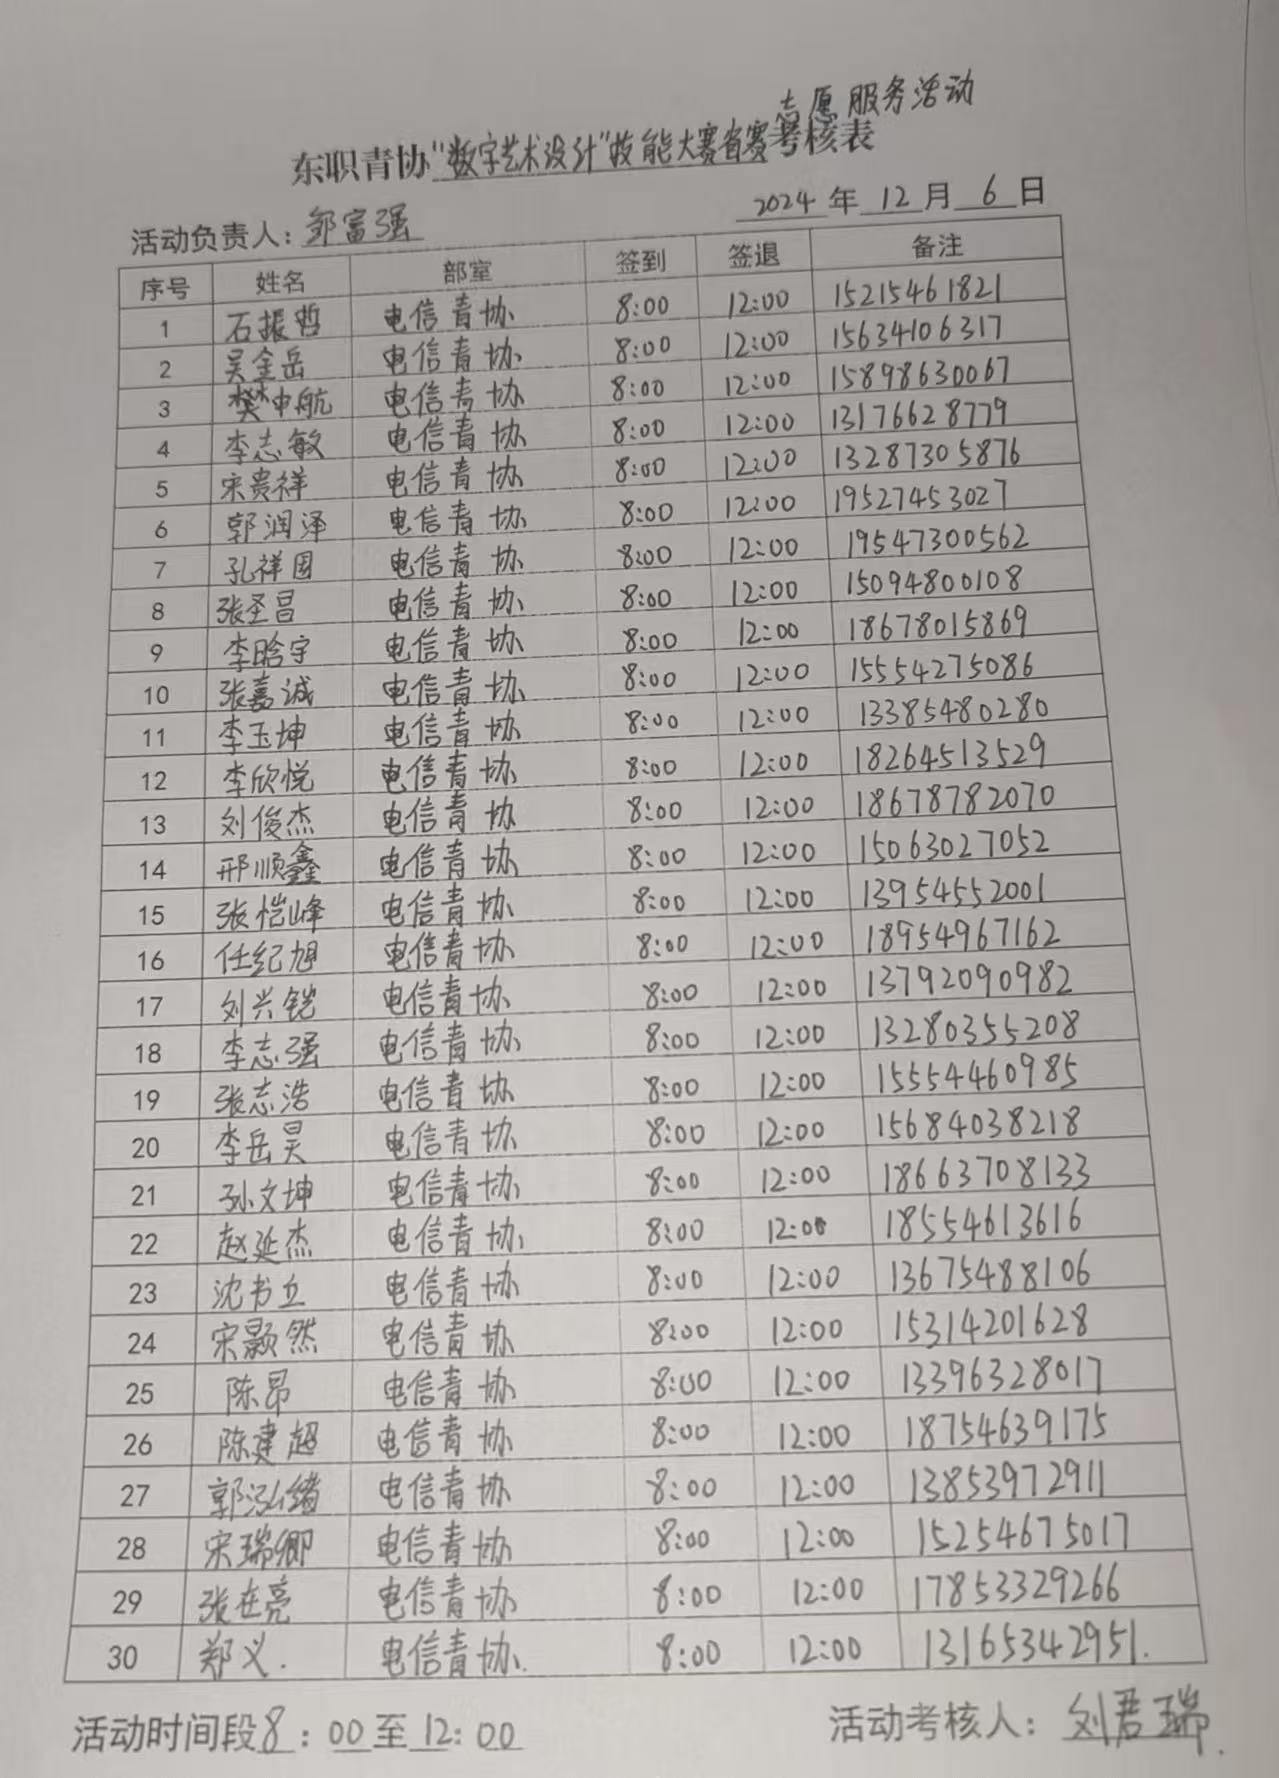 志愿服务活动
东职青协“数字艺术设计”技能大赛省赛考核表
活动负责人：邹富强 2024 年 12 月 6 日
序号 姓名 部室 签到 签退 备注
1 石振哲 电信青协 8:00 12:00 15215461821
2 吴金岳 电信青协 8:00 12:00 15634106317
3 樊中航 电信青协 8:00 12:00 15898630067
4 李志敏 电信青协 8:00 12:00 13176628779
5 宋贵祥 电信青协 8:00 12:00 13287305876
6 郭润泽 电信青协 8:00 12:00 19527453027
7 孔祥国 电信青协 8:00 12:00 19547300562
8 张圣昌 电信青协 8:00 12:00 15094800108
9 李晗宇 电信青协 8:00 12:00 18678015869
10 张嘉诚 电信青协 8:00 12:00 15554275086
11 李玉坤 电信青协 8:00 12:00 13385480280
12 李欣悦 电信青协 8:00 12:00 18264513529
13 刘俊杰 电信青协 8:00 12:00 18678782070
14 邢顺鑫 电信青协 8:00 12:00 15063027052
15 张恺峰 电信青协 8:00 12:00 13954552001
16 任纪旭 电信青协 8:00 12:00 18954967162
17 刘兴铠 电信青协 8:00 12:00 13792090982
18 李志强 电信青协 8:00 12:00 13280355208
19 张志浩 电信青协 8:00 12:00 15554460985
20 李岳昊 电信青协 8:00 12:00 15684038218
21 孙文坤 电信青协 8:00 12:00 18663708133
22 赵延杰 电信青协 8:00 12:00 18554613616
23 沈书立 电信青协 8:00 12:00 13675488106
24 宋颢然 电信青协 8:00 12:00 15314201628
25 陈昂 电信青协 8:00 12:00 13396328017
26 陈建超 电信青协 8:00 12:00 18754639175
27 郭泓绪 电信青协 8:00 12:00 13853972911
28 宋瑞卿 电信青协 8:00 12:00 15254675017
29 张在亮 电信青协 8:00 12:00 17853329266
30 郑义. 电信青协. 8:00 12:00 13165342951.
活动时间段8：00至12：00 活动考核人：刘君瑞.